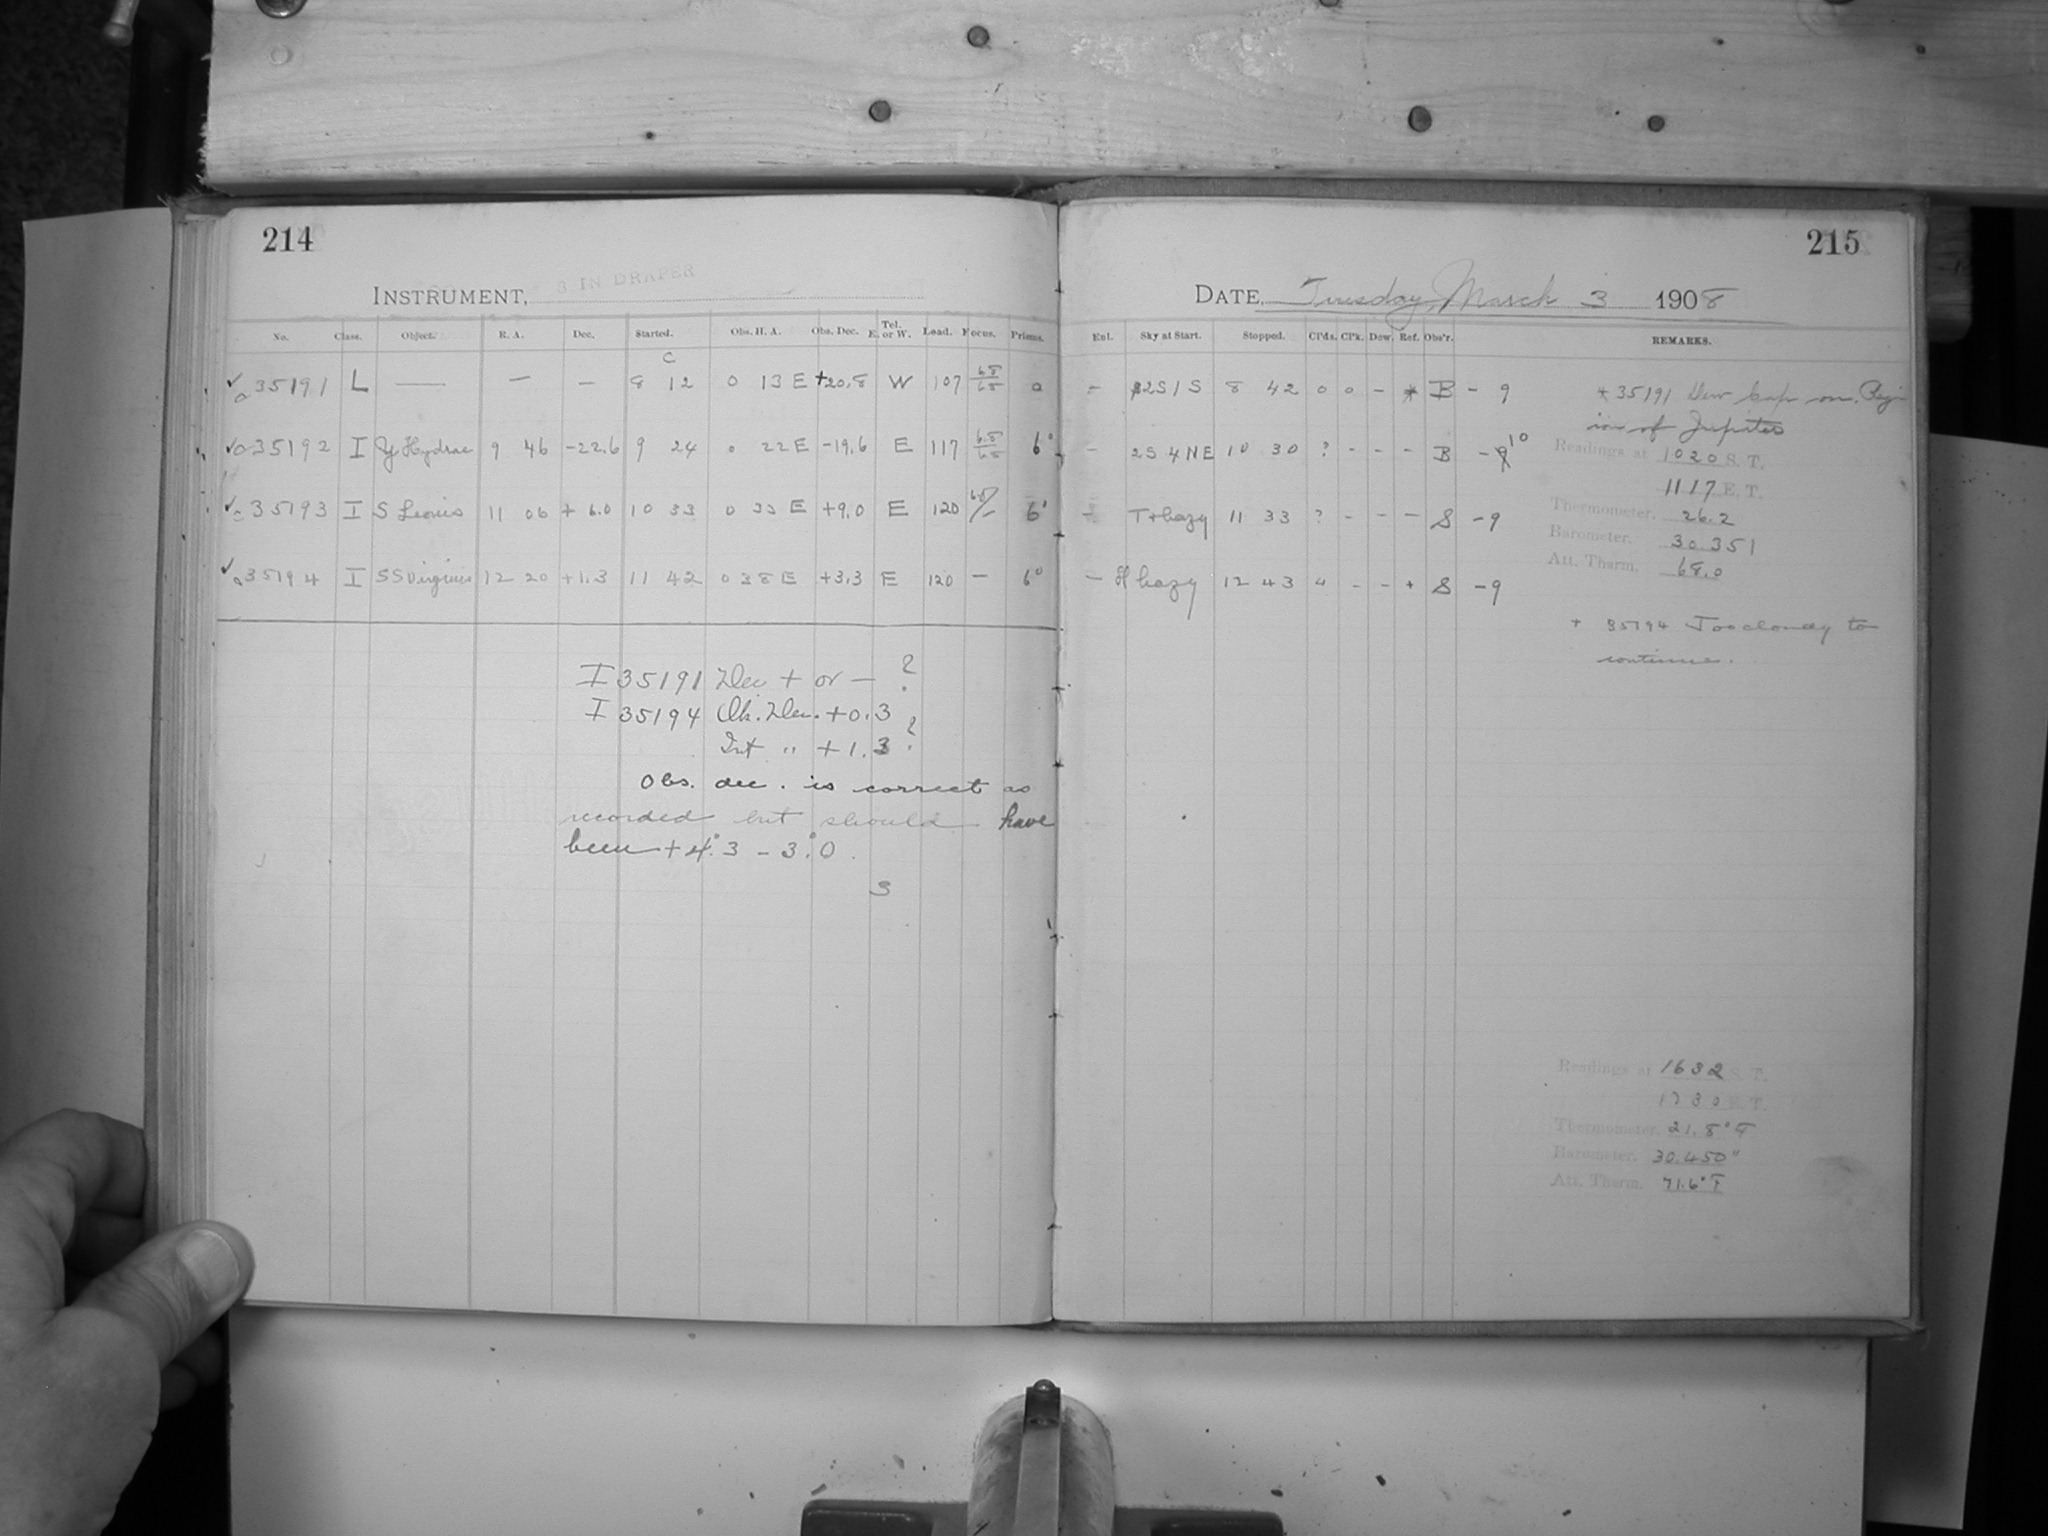 214
8 IN DRAPER
INSTRUMENT,
No. Class. Object. R. A. Dec. Started. Obs. H. A. Obs. Dec. Tel. E. or W. Load. Focus. Prisms.
C
35191 L — — — 8 12 0 13 E +20.8 W 107 68/68 0
35192 I Y Hydrae 9 46 -22.6 9 24 0 22 E -19.6 E 117 6.8/68 6°
35193 I S Leonis 11 06 + 6.0 10 33 0 33 E +9.0 E 120 6°
35194 I SS Virginis 12 20 +1.3 11 42 0 38 E +3.3 E 120 — 6°
I 35191 Dec + or — ?
I 35194 Ob. Dec. +0.3
Int " +1.3 ?
Obs. dec. is correct as
recorded but should have
been +4°.3 - 3°.0.
S
215
DATE, Tuesday, March 3 1908
Enl. Sky at Start. Stopped. Cl'ds. Cl'k. Dew. Ref. Obs'r. REMARKS.
- 2S1S 8 42 0 0 - * B - 9
* 35191 Dew Cap on. Reg-
ion of Jupiter
- 2S4NE 10 30 ? - - - B - 10
Readings at 1020 S. T.
1117 E. T.
T+hazy 11 33 ? - - - S -9
Thermometer. 26.2
Barometer. 30.351
Att. Therm. 68.0
- H hazy 12 43 " - - + S -9
+ 35194 Too cloudy to
continue.
Readings at 1632 S. T.
1730 E. T.
Thermometer. 21.8°F
Barometer. 30.450"
Att. Therm. 71.6°F